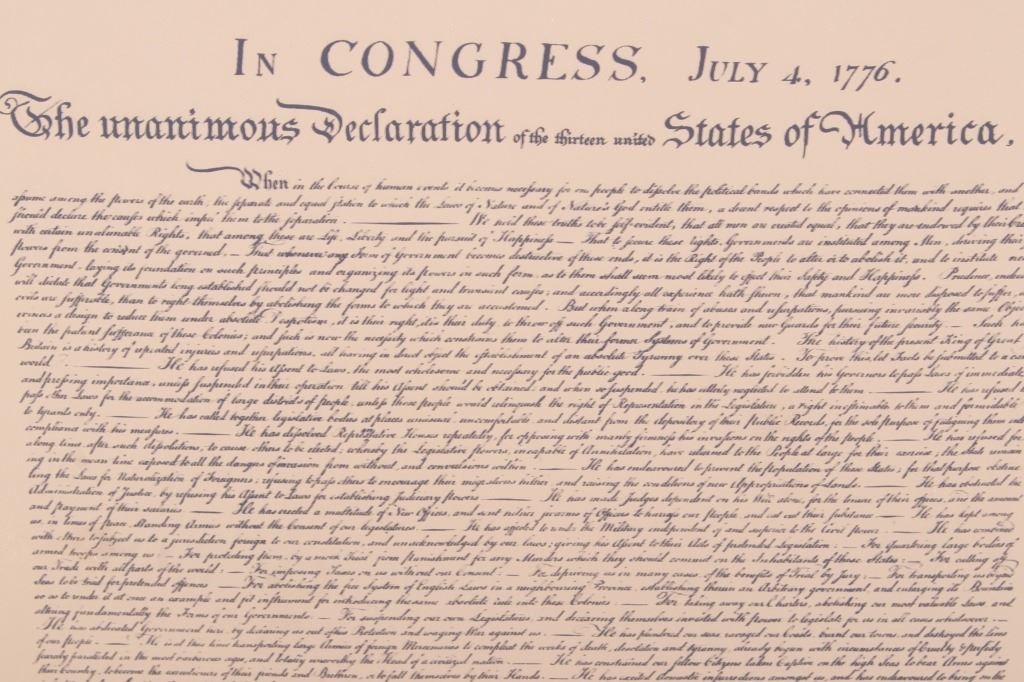 In CONGRESS, July 4, 1776.
The unanimous Declaration of the thirteen united States of America,
When in the Course of human events it becomes necessary for one people to dissolve the political bands which have connected them with another, and
assume among the powers of the earth, the separate and equal station to which the Laws of Nature and of Nature's God entitle them, a decent respect to the opinions of mankind requires that
should declare the causes which impel them to the separation. — We hold these truths to be self-evident, that all men are created equal, that they are endowed by their
with certain unalienable Rights, that among these are Life, Liberty and the pursuit of Happiness — That to secure these rights, Governments are instituted among Men, deriving their
powers from the consent of the governed, — That whenever any Form of Government becomes destructive of these ends, it is the Right of the People to alter or to abolish it, and to institute
Government, laying its foundation on such principles and organizing its powers in such form, as to them shall seem most likely to effect their Safety and Happiness. Prudence, indeed
will dictate that Governments long established should not be changed for light and transient causes; and accordingly all experience hath shewn, that mankind are more disposed to suffer,
evils are sufferable, than to right themselves by abolishing the forms to which they are accustomed. But when a long train of abuses and usurpations, pursuing invariably the same Object
evinces a design to reduce them under absolute Despotism, it is their right, it is their duty, to throw off such Government, and to provide new Guards for their future security. — Such
been the patient sufferance of these Colonies; and such is now the necessity which constrains them to alter their former Systems of Government. The history of the present King of Great
Britain is a history of repeated injuries and usurpations, all having in direct object the establishment of an absolute Tyranny over these States. To prove this, let Facts be submitted to a
world. — He has refused his Assent to Laws, the most wholesome and necessary for the public good. — He has forbidden his Governors to pass Laws of immediate
and pressing importance, unless suspended in their operation till his Assent should be obtained; and when so suspended, he has utterly neglected to attend to them. — He has refused
pass other Laws for the accommodation of large districts of people, unless those people would relinquish the right of Representation in the Legislature, a right inestimable to them and formidable
to tyrants only. — He has called together legislative bodies at places unusual, uncomfortable, and distant from the depository of their Public Records, for the sole purpose of fatiguing them into
compliance with his measures. — He has dissolved Representative Houses repeatedly, for opposing with manly firmness his invasions on the rights of the people. — He has refused for
a long time, after such dissolutions, to cause others to be elected; whereby the Legislative powers, incapable of Annihilation, have returned to the People at large for their exercise; the State remain
ing in the mean time exposed to all the dangers of invasion from without, and convulsions within. — He has endeavoured to prevent the population of these States; for that purpose obstruc
ting the Laws for Naturalization of Foreigners; refusing to pass others to encourage their migrations hither, and raising the conditions of new Appropriations of Lands. — He has obstructed the
Administration of Justice, by refusing his Assent to Laws for establishing Judiciary powers. — He has made Judges dependent on his Will alone, for the tenure of their offices, and the amount
and payment of their salaries. — He has erected a multitude of New Offices, and sent hither swarms of Officers to harass our People, and eat out their substance. — He has kept among
us, in times of peace, Standing Armies without the Consent of our legislatures. — He has affected to render the Military independent of and superior to the Civil power. — He has combined
with others to subject us to a jurisdiction foreign to our constitution, and unacknowledged by our laws; giving his Assent to their Acts of pretended Legislation: — For Quartering large bodies of
armed troops among us: — For protecting them, by a mock Trial, from Punishment for any Murders which they should commit on the Inhabitants of these States: — For cutting off
our Trade with all parts of the world: — For imposing Taxes on us without our Consent: — For depriving us in many cases, of the benefits of Trial by Jury: — For transporting us beyond
Seas to be tried for pretended offences — For abolishing the free System of English Laws in a neighbouring Province, establishing therein an Arbitrary government, and enlarging its Boundaries
so as to render it at once an example and fit instrument for introducing the same absolute rule into these Colonies: — For taking away our Charters, abolishing our most valuable Laws, and
altering fundamentally the Forms of our Governments: — For suspending our own Legislatures, and declaring themselves invested with power to legislate for us in all cases whatsoever. —
He has abdicated Government here, by declaring us out of his Protection and waging War against us. — He has plundered our seas, ravaged our Coasts, burnt our towns, and destroyed the lives
of our people. — He is at this time transporting large Armies of foreign Mercenaries to compleat the works of death, desolation and tyranny, already begun with circumstances of Cruelty & perfidy
scarcely paralleled in the most barbarous ages, and totally unworthy the Head of a civilized nation. — He has constrained our fellow Citizens taken Captive on the high Seas to bear Arms against
their Country, to become the executioners of their friends and Brethren, or to fall themselves by their Hands. — He has excited domestic insurrections amongst us, and has endeavoured to bring on the